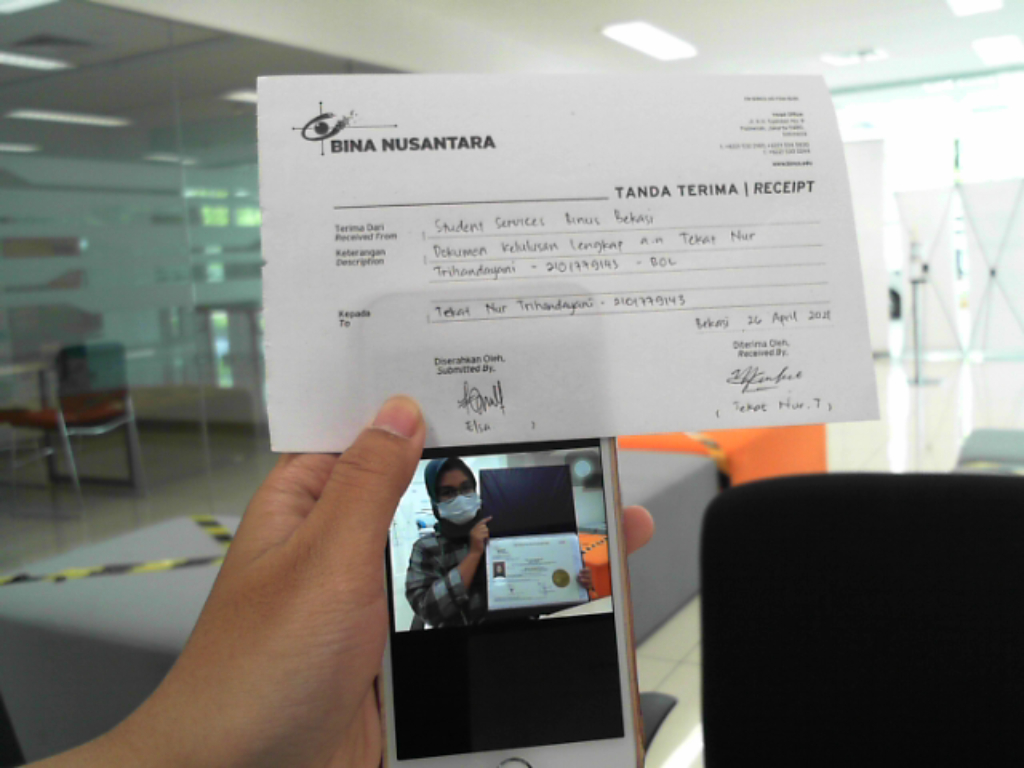 BINA NUSANTARA
Head Office
www.binus.edu
TANDA TERIMA | RECEIPT
Terima Dari
Received From
: Student Services Binus Bekasi
Keterangan
Description
: Dokumen Kelulusan Lengkap a.n Tekat Nur
Trihandayani - 2101779143 - BOL
Kepada
To
: Tekat Nur Trihandayani - 2101779143
Bekasi, 26 April 2021
Diserahkan Oleh,
Submitted By,
Diterima Oleh,
Received By,
Elsa )
( Tekat Nur. T )